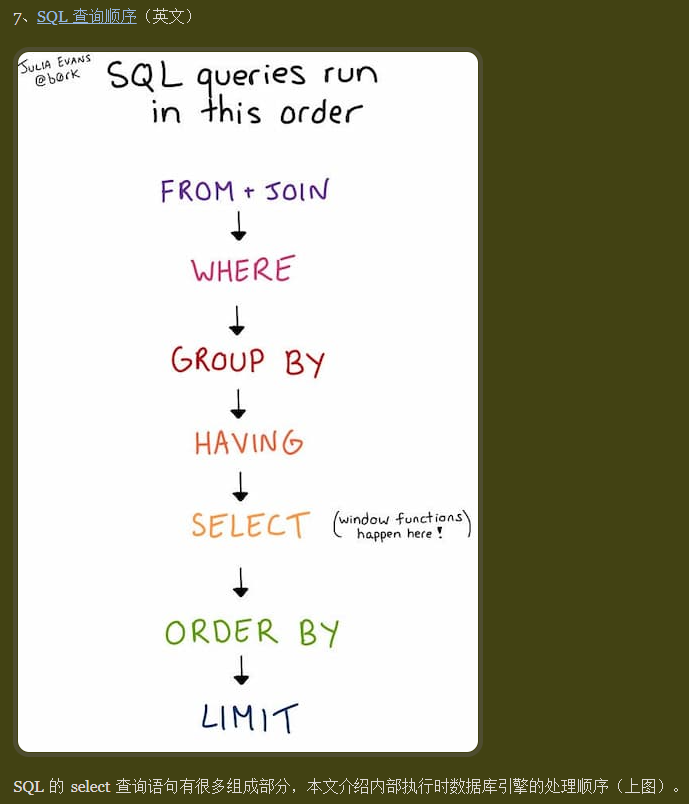 7、SQL 查询顺序（英文）
JULIA EVANS
@b0rk
SQL queries run
in this order
FROM + JOIN
WHERE
GROUP BY
HAVING
SELECT
(window functions
happen here!)
ORDER BY
LIMIT
SQL 的 select 查询语句有很多组成部分，本文介绍内部执行时数据库引擎的处理顺序（上图）。